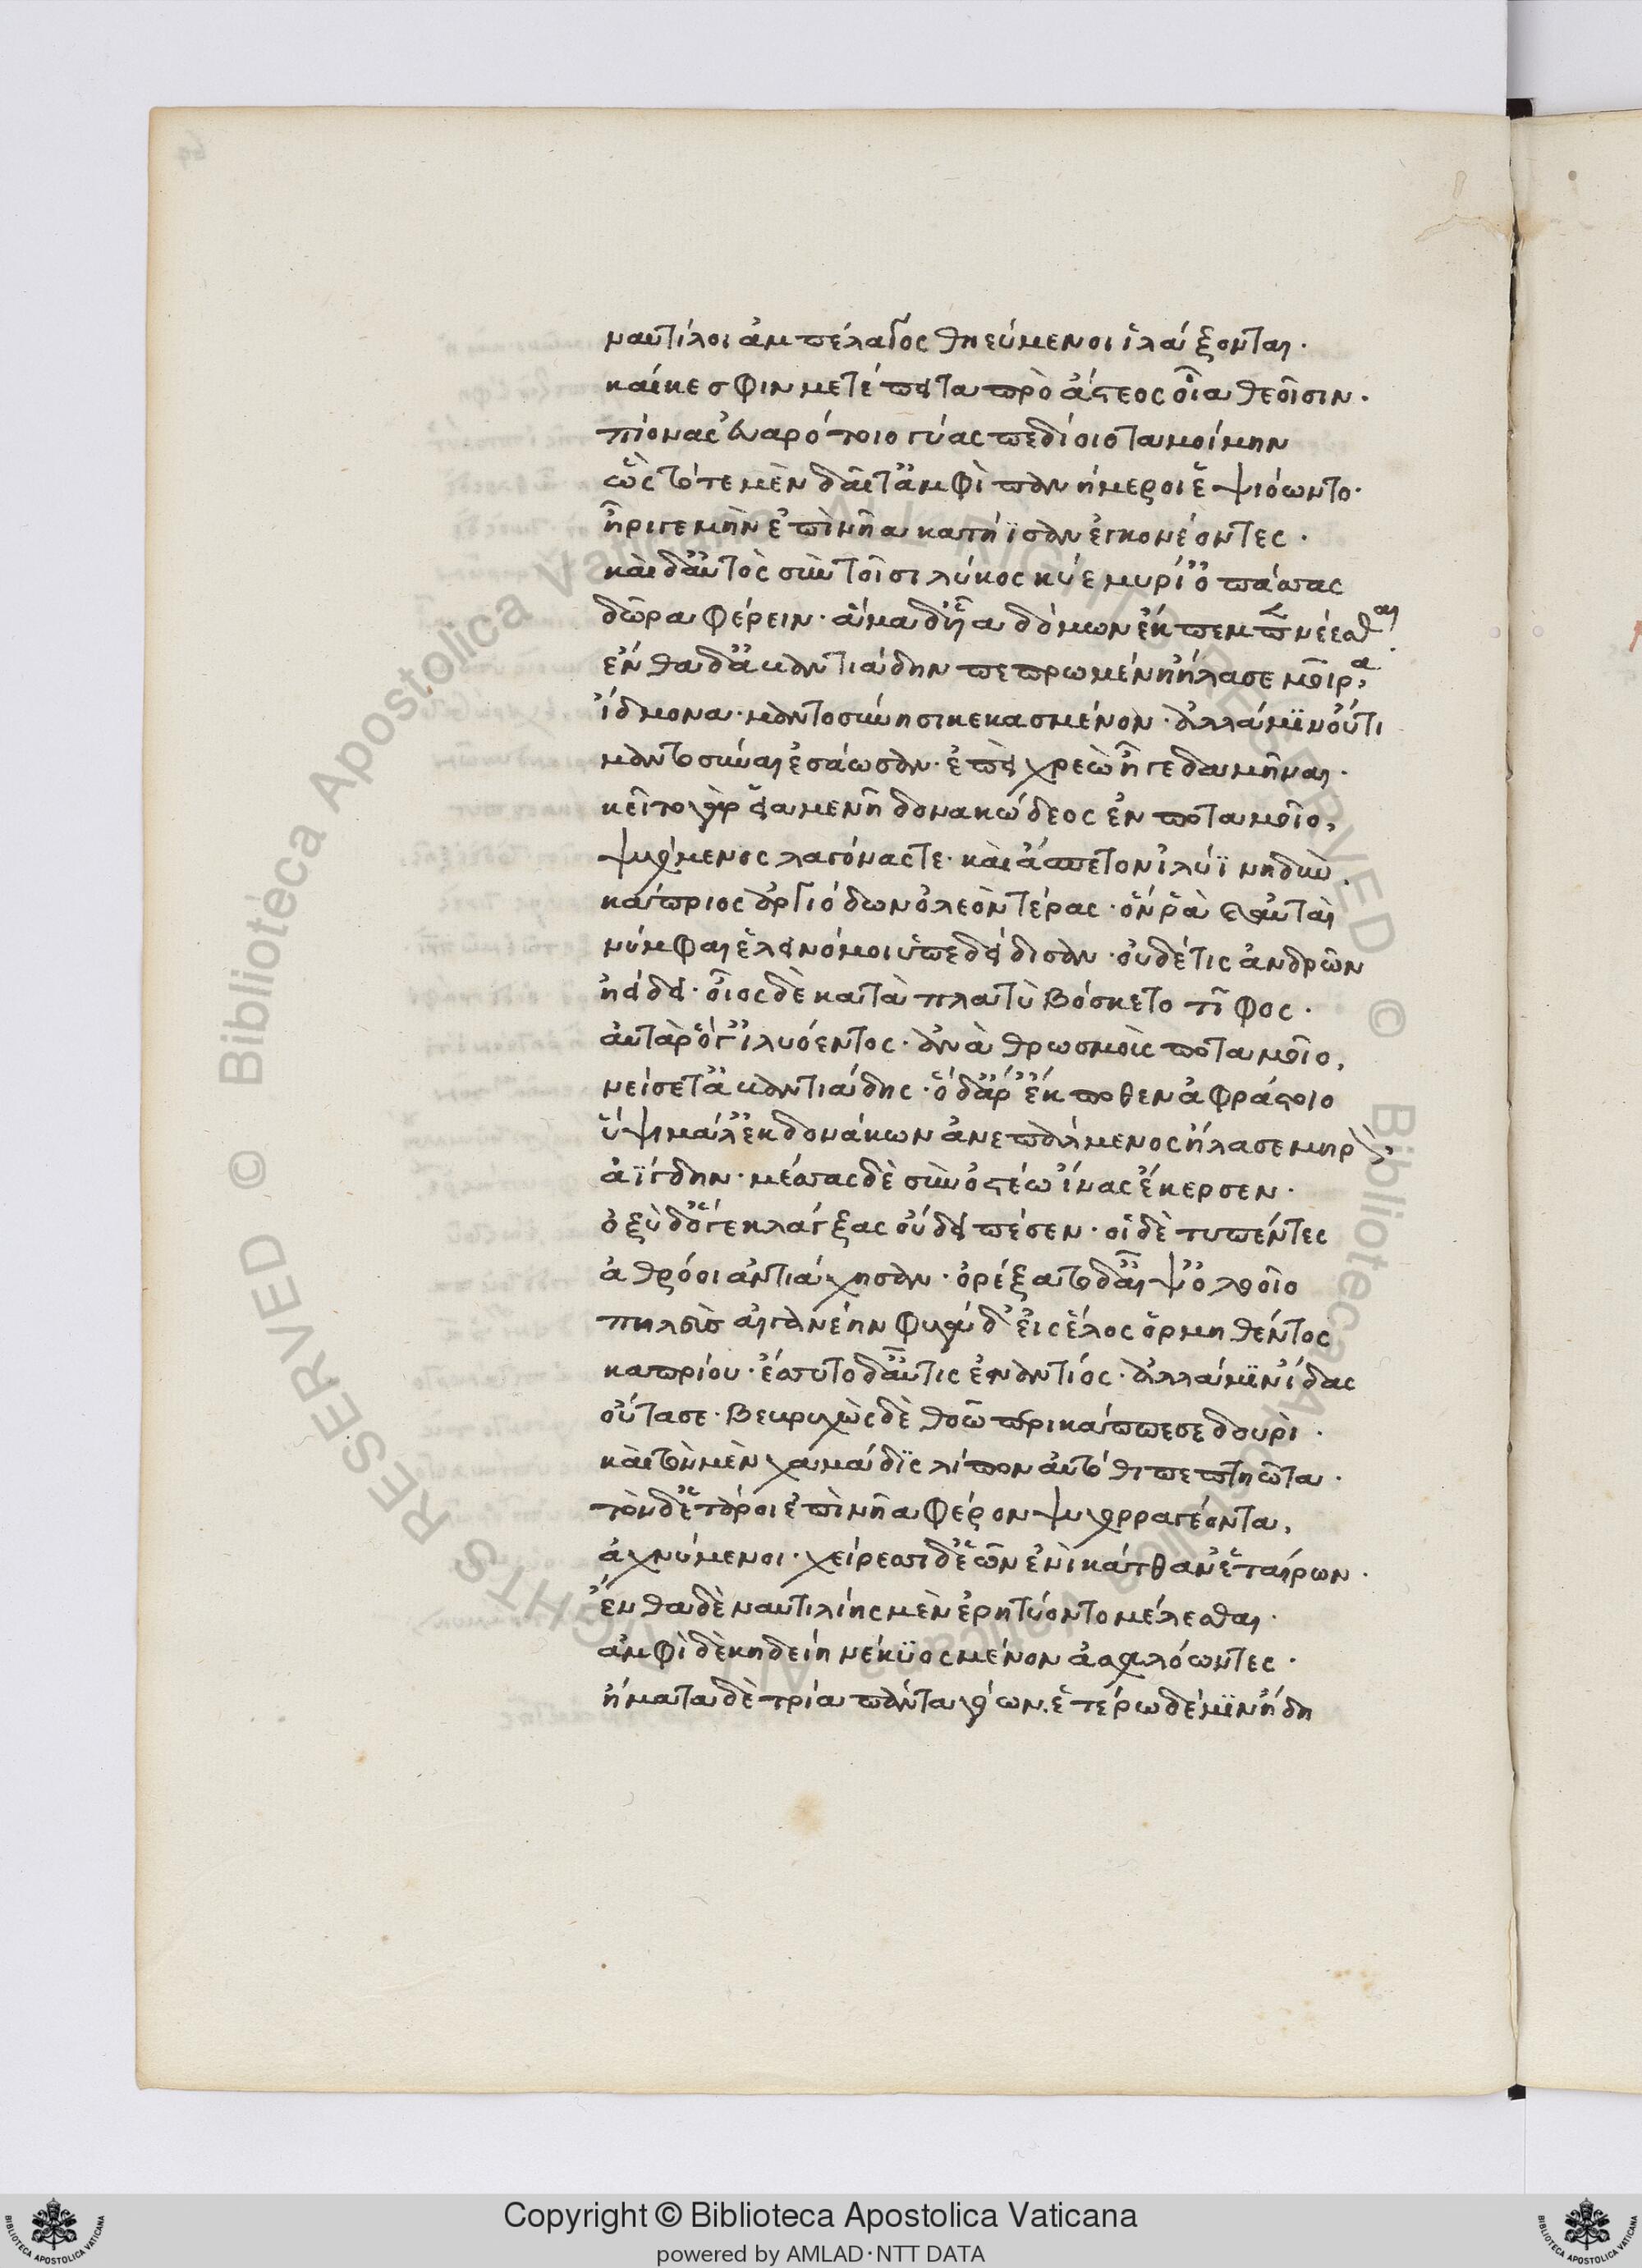 ναυτίλοι ἂμ πέλαγος θηεύμενοι ἱλάξονται.
καί κε σφιν μετέπειτα πρὸ ἄστεος οἷα θεοῖσιν.
πίονας εὐαρότοιο γύας πεδίοιο ταμοίμην
ὣς τότε μὲν δαῖτ' ἀμφὶ πανήμεροι ἑψιόωντο.
ἦρί γε μὴν ἐπὶ νῆα κατήϊσαν ἐγκονέοντες.
καὶ δ' αὐτὸς σὺν τοῖσι λύκος κύε μυρί' ὀπάσσας
δῶρα φέρειν. ἅμα δ' υἷα δόμων ἔκπεμπε νέεσθαι.
ἔνθα δ' ἀβαντιάδην πεπρωμένη ἤλασε μοῖρα,
ἴδμονα. μαντοσύνησι κεκασμένον. ἀλλά μϊν οὔτι
μαντοσύναι ἐσάωσαν. ἐπεὶ χρεὼ ἦγε δαμῆναι.
κεῖτο γὰρ εἱαμενῇ δονακώδεος ἐν ποταμοῖο,
ψυχόμενος λαγόνας τε. καὶ ἄσπετον ἰλύϊ νηδὺν.
κάπριος ἀργιόδων ὀλεὸν τέρας. ὅν ῥὰ καὶ αὐταὶ
νύμφαι ἑλεινόμοι ὑπεδείδισαν. οὐδέ τις ἀνδρῶν
ἠείδει. οἶος δὲ κατὰ πλατὺ βόσκετο τῖφος.
αὐτὰρ ὅγ' ἰλυόεντος. ἀνὰ θρωσμοὺς ποταμοῖο,
νείσετ' ἀβαντιάδης. ὁ δ' ἄρ' ἔκποθεν ἀφράστοιο
ὕψι μάλ' ἐκ δονάκων ἀνεπάλμενος ἤλασε μηρὸν,
ἀΐγδην. μέσσας δὲ σὺν ὀστέω ἶνας ἔκερσεν.
ὀξὺ δ' ὅγε κλάγξας οὔδει πέσεν. οἱ δὲ τυπέντες
ἀθρόοι ἀντιάχησαν. ὀρέξατο δ' αἶψ' ὀλοοῖο
πηλεὺς αἰγανέην φυγάδ' εἰς ἕλος ὁρμηθέντος
καπρίου. ἔσσυτο δ' αὖτις ἐναντίος. ἀλλά μϊν ἴδας
οὔτασε. βεβρυχὼς δὲ θοῶ περικάππεσε δουρὶ.
καὶ τὸν μὲν χαμάδϊς λίπον αὐτόθι πεπτηῶτα.
τὸν δ' ἕταροι ἐπὶ νῆα φέρον ψυχορραγέοντα,
ἀχνύμενοι. χείρεσσι δ' ἑῶν ἐνὶ κάτθαν' ἑταίρων.
ἔνθα δὲ ναυτιλίης μὲν ἐρητύοντο μέλεσθαι.
ἀμφὶ δὲ κηδείη νέκϋος μένον ἀσχαλόωντες.
ἤματα δὲ τρία πάντα γόων. ἑτέρω δέ μϊν ἤδη
Copyright © Biblioteca Apostolica Vaticana
powered by AMLAD·NTT DATA